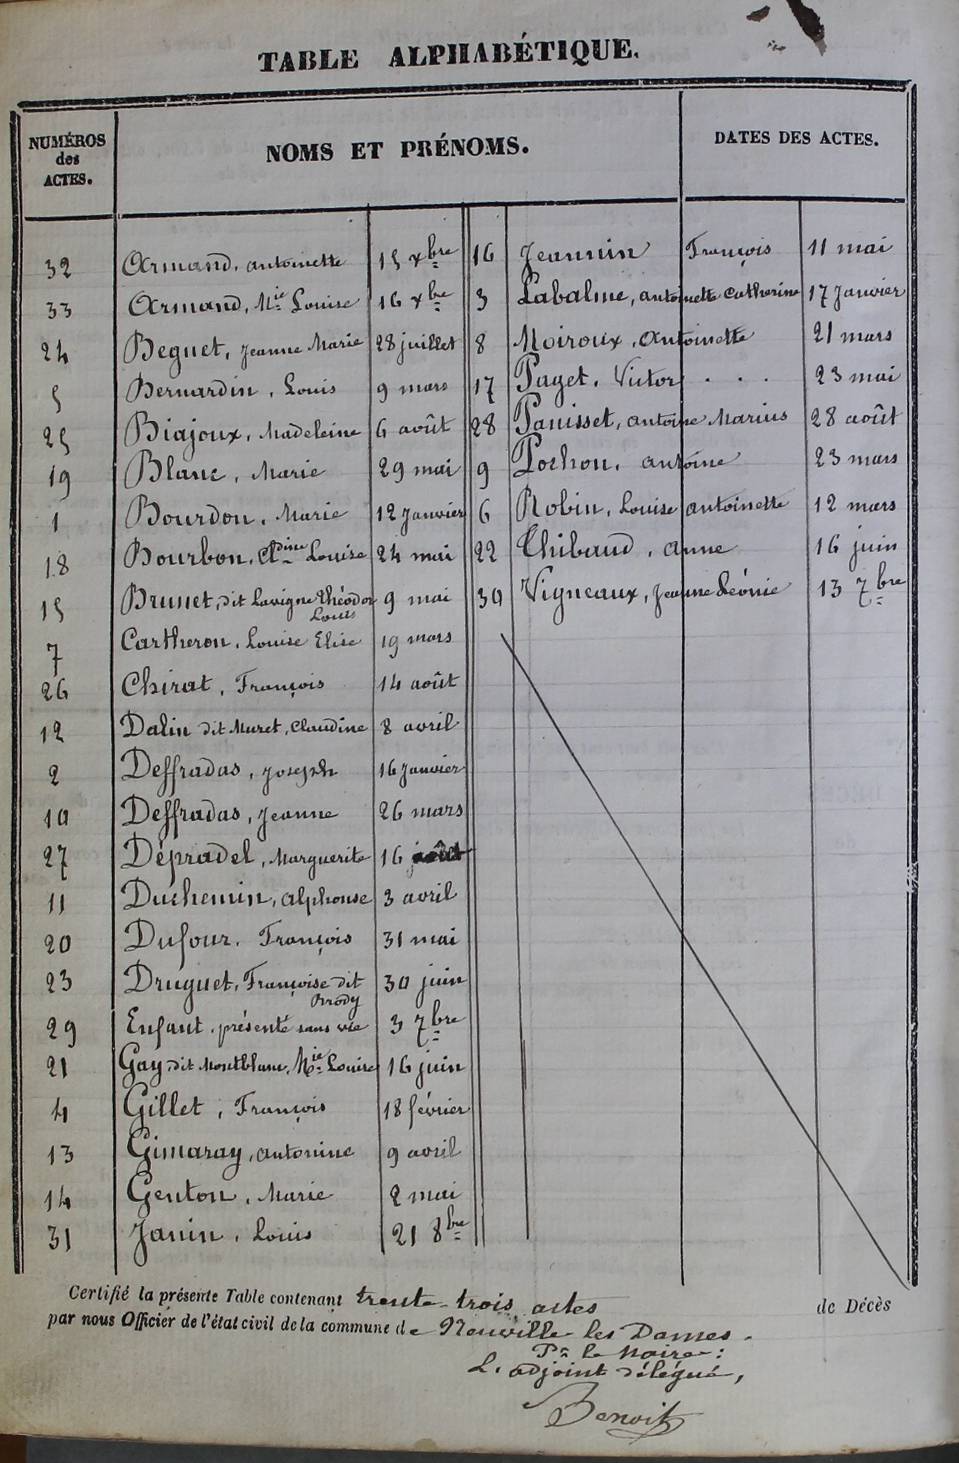 TABLE ALPHABÉTIQUE.
NUMÉROS des ACTES.
NOMS ET PRÉNOMS.
DATES DES ACTES.
32 Armand, antoinette 15 xbre
33 Armand, Mie Louise 16 xbre
24 Beguet, Jeanne Marie 28 juillet
5 Bernardin, Louis 9 mars
25 Biajoux, Madeleine 6 août
19 Blanc, Marie 29 mai
1 Bourdon, Marie 12 Janvier
18 Bourbon, Cldine Louise 24 mai
15 Brunet, dit Lavigne Théodor Louis 9 mai
7 Cartheron, Louise Elise 19 mars
26 Chirat, François 14 août
12 Dalin dit Muret, Claudine 8 avril
2 Deffradas, Joseph 16 Janvier
10 Deffradas, Jeanne 26 mars
27 Dépradel, Marguerite 16 août
11 Duchemin, Alphonse 3 avril
20 Dufour, François 31 mai
23 Druguet, Françoise dit Brody 30 juin
29 Enfant présenté sans vie 3 7bre
21 Gay dit Montblanc, Mie Louise 16 juin
4 Gillet, François 18 février
13 Gimaray, antonine 9 avril
14 Genton, Marie 2 mai
31 Janin, Louis 21 8bre
16 Jeannin François 11 mai
3 Labalme, antoinette Catherine 17 Janvier
8 Moiroux, Antoinette 21 mars
17 Paget, Victor . . . 23 mai
28 Panisset, antoine Marius 28 août
9 Pochon, antoine 23 mars
6 Robin, Louise antoinette 12 mars
22 Thibaud, anne 16 juin
30 Vigneaux, Jeanne Léonie 13 7bre
Certifié la présente Table contenant trente-trois actes de Décès
par nous Officier de l'état civil de la commune de Neuville les Dames.
Pr le Maire:
L'adjoint délégué,
Benoit